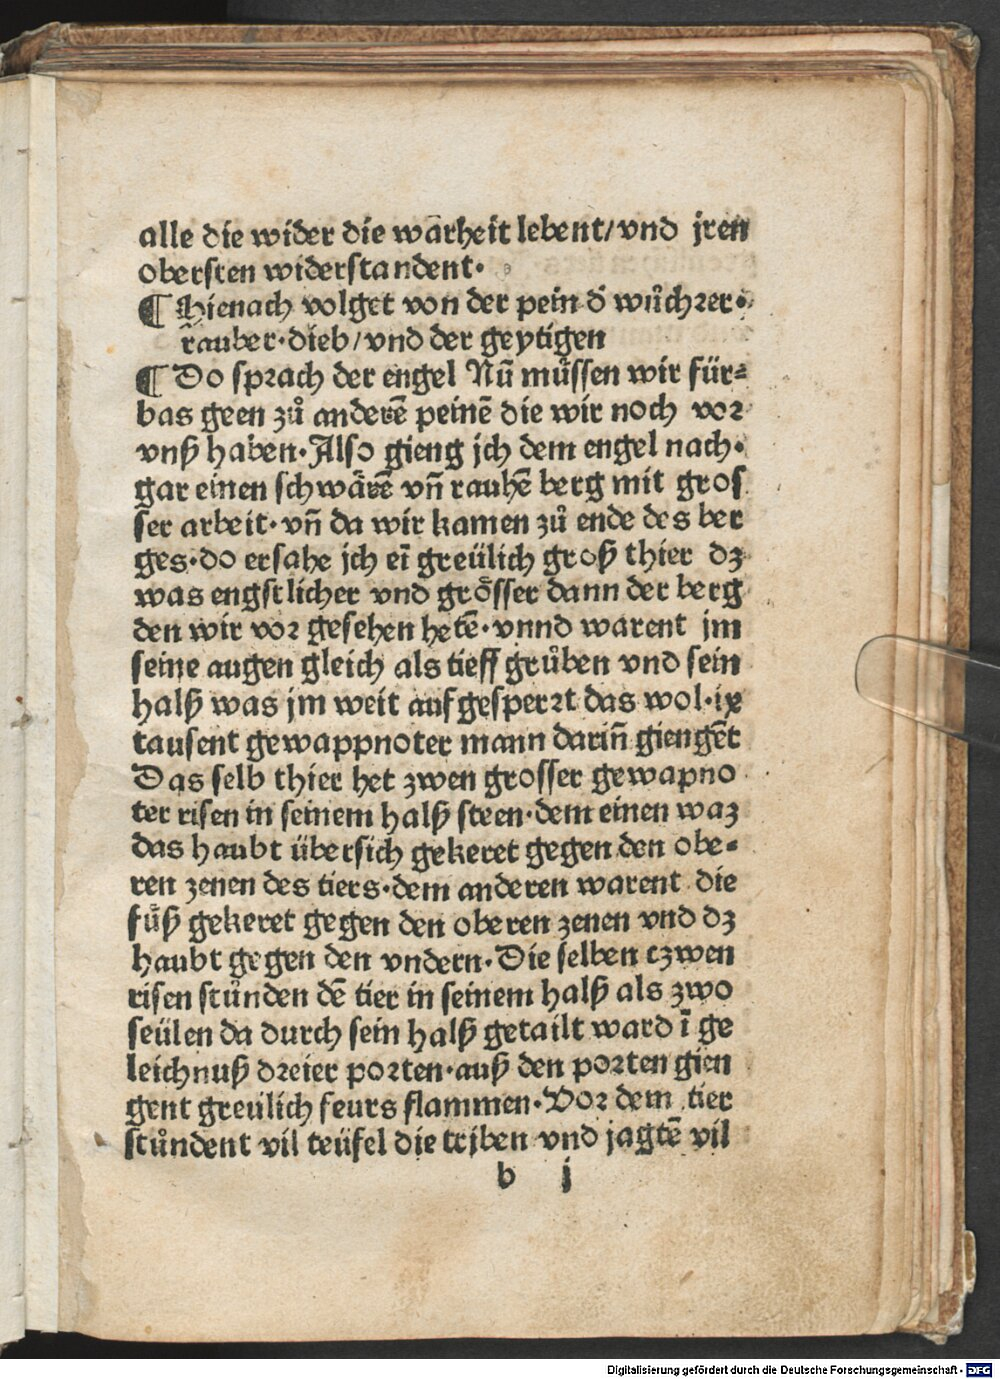 alle die wider die warheit lebent/vnd jren
obersten widerstandent·
¶ Hienach volget von der pein d̕ wůchrer·
rauber·dieb/vnd der geytigen
¶ Do sprach der engel Nū můssen wir für⸗
bas geen zů anderē peinē die wir noch vor
vnß haben·Also gieng jch dem engel nach·
gar einen schwärē vñ rauhē berg mit gros
ser arbeit·vñ da wir kamen zů ende des ber
ges·do ersahe jch eī greülich groß thier dz
was engstlicher vnd grösser dann der berg
den wir vor gesehen hetē·vnnd warent jm
seine augen gleich als tieff grůben vnd sein
halß was jm weit aufgesperrt das wol·ix
tausent gewappnoter mann dariñ giengēt
Das selb thier het zwen grosser gewapno
ter risen in seinem halß steen·dem einen waz
das haubt übersich gekeret gegen den obe⸗
ren zenen des tiers·dem anderen warent die
füß gekeret gegen den oberen zenen vnd dz
haubt gegen den vndern·Die selben czwen
risen stůnden dē tier in seinem halß als zwo
seülen da durch sein halß getailt ward ī ge
leichnuß dreier porten·auß den porten gien
gent greülich feurs flammen·Vor dem tier
stůndent vil teüfel die trjben vnd jagtē vil
b j
Digitalisierung gefördert durch die Deutsche Forschungsgemeinschaft - DFG